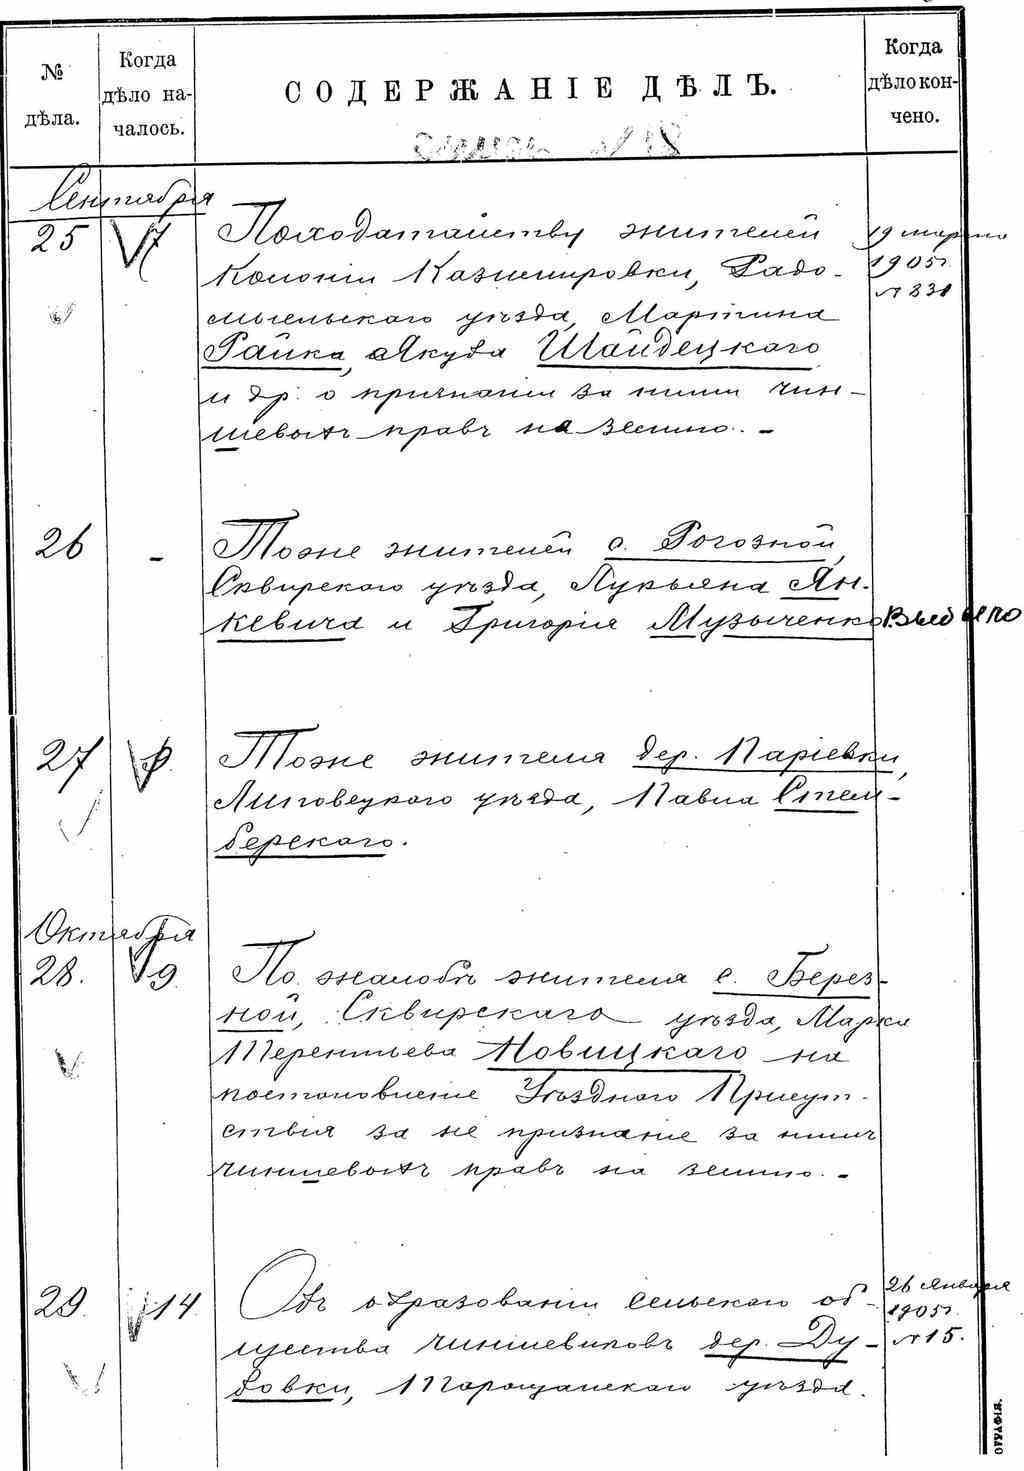 № дѣла.
Когда дѣло началось.
СОДЕРЖАНІЕ ДѢЛЪ.
Когда дѣло кончено.
Сентября
25 7 По ходатайству жителей 19 марта
колоніи Казимировки, Радо- 1905 г.
мысльскаго уѣзда, Мартина № 831
Райка, Якуба Шайдецкаго
и др. о признаніи за ними чин-
шевыхъ правъ на землю. -
26 - Тоже жителей с. Рогозной,
Сквирскаго уѣзда, Лукьяна Ян-
кевича и Григорія Музыченко. Выбыло
27 9. Тоже жителя дер. Паріевки,
Липовецкаго уѣзда, Павла Стем-
берскаго.
Октября
28. 9 По жалобѣ жителя с. Берез-
ной, Сквирскаго уѣзда, Марка
Терентьева Новицкаго на
постановленіе Уѣзднаго Присут-
ствія за не признаніе за нимъ
чиншевыхъ правъ на землю. -
29. 14 Объ образованіи сельскаго об- 26 Января
щества чиншевиковъ дер. Ду- 1905 г.
бовки, Таращанскаго уѣзда. № 15.
ОГРАФІЯ.